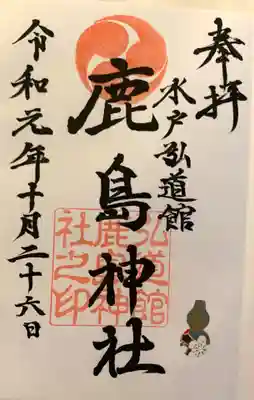 奉拝
水戸弘道館
鹿島神社
令和元年十月二十六日
弘道館
鹿島神
社之印